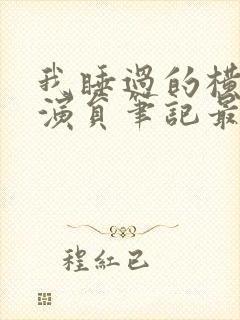 我睡過的横
演員筆記最
程紅已